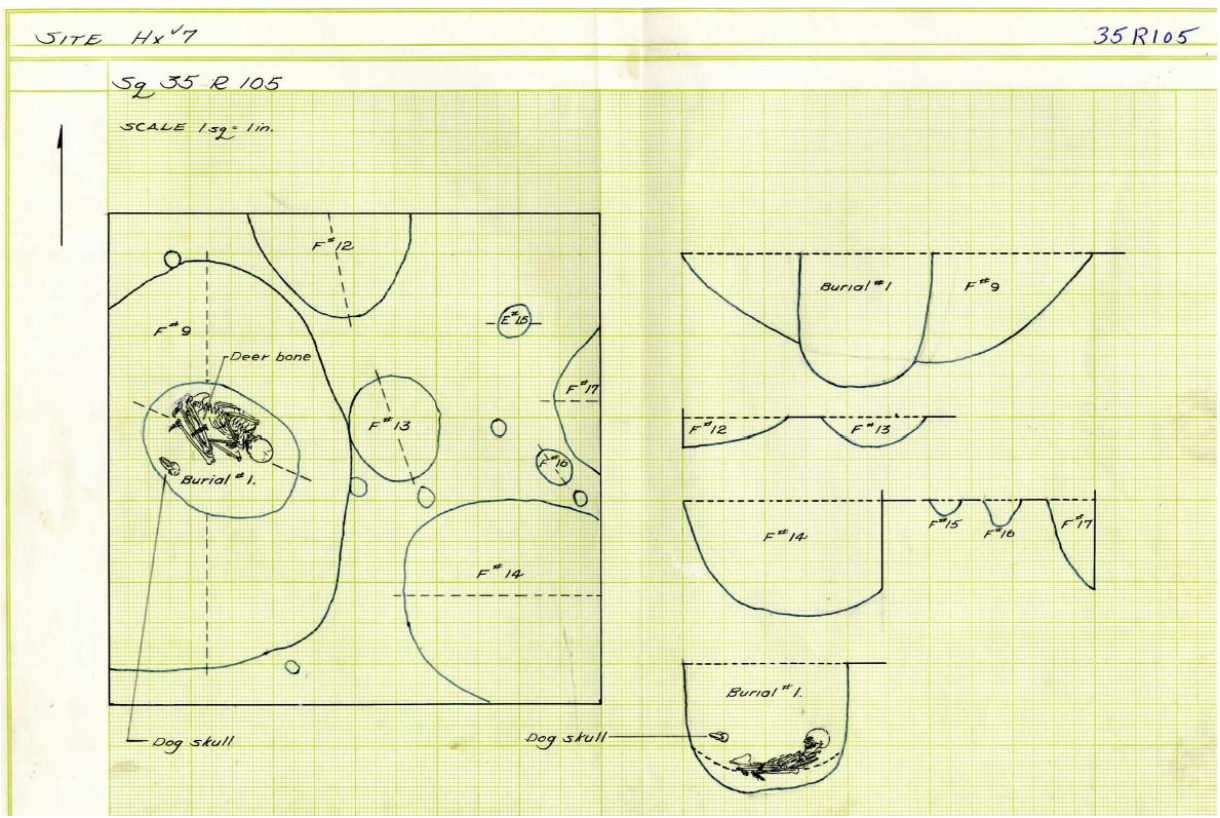 SITE Hx√7
35R105
Sq 35 R 105
SCALE 1 sq = 1 in.
F#12
F#9
Deer bone
E#15
F#17
F#13
F#16
Burial #1.
F#14
Dog skull
Burial #1
F#9
F#12
F#13
F#14
F#15
F#16
F#17
Burial #1.
Dog skull